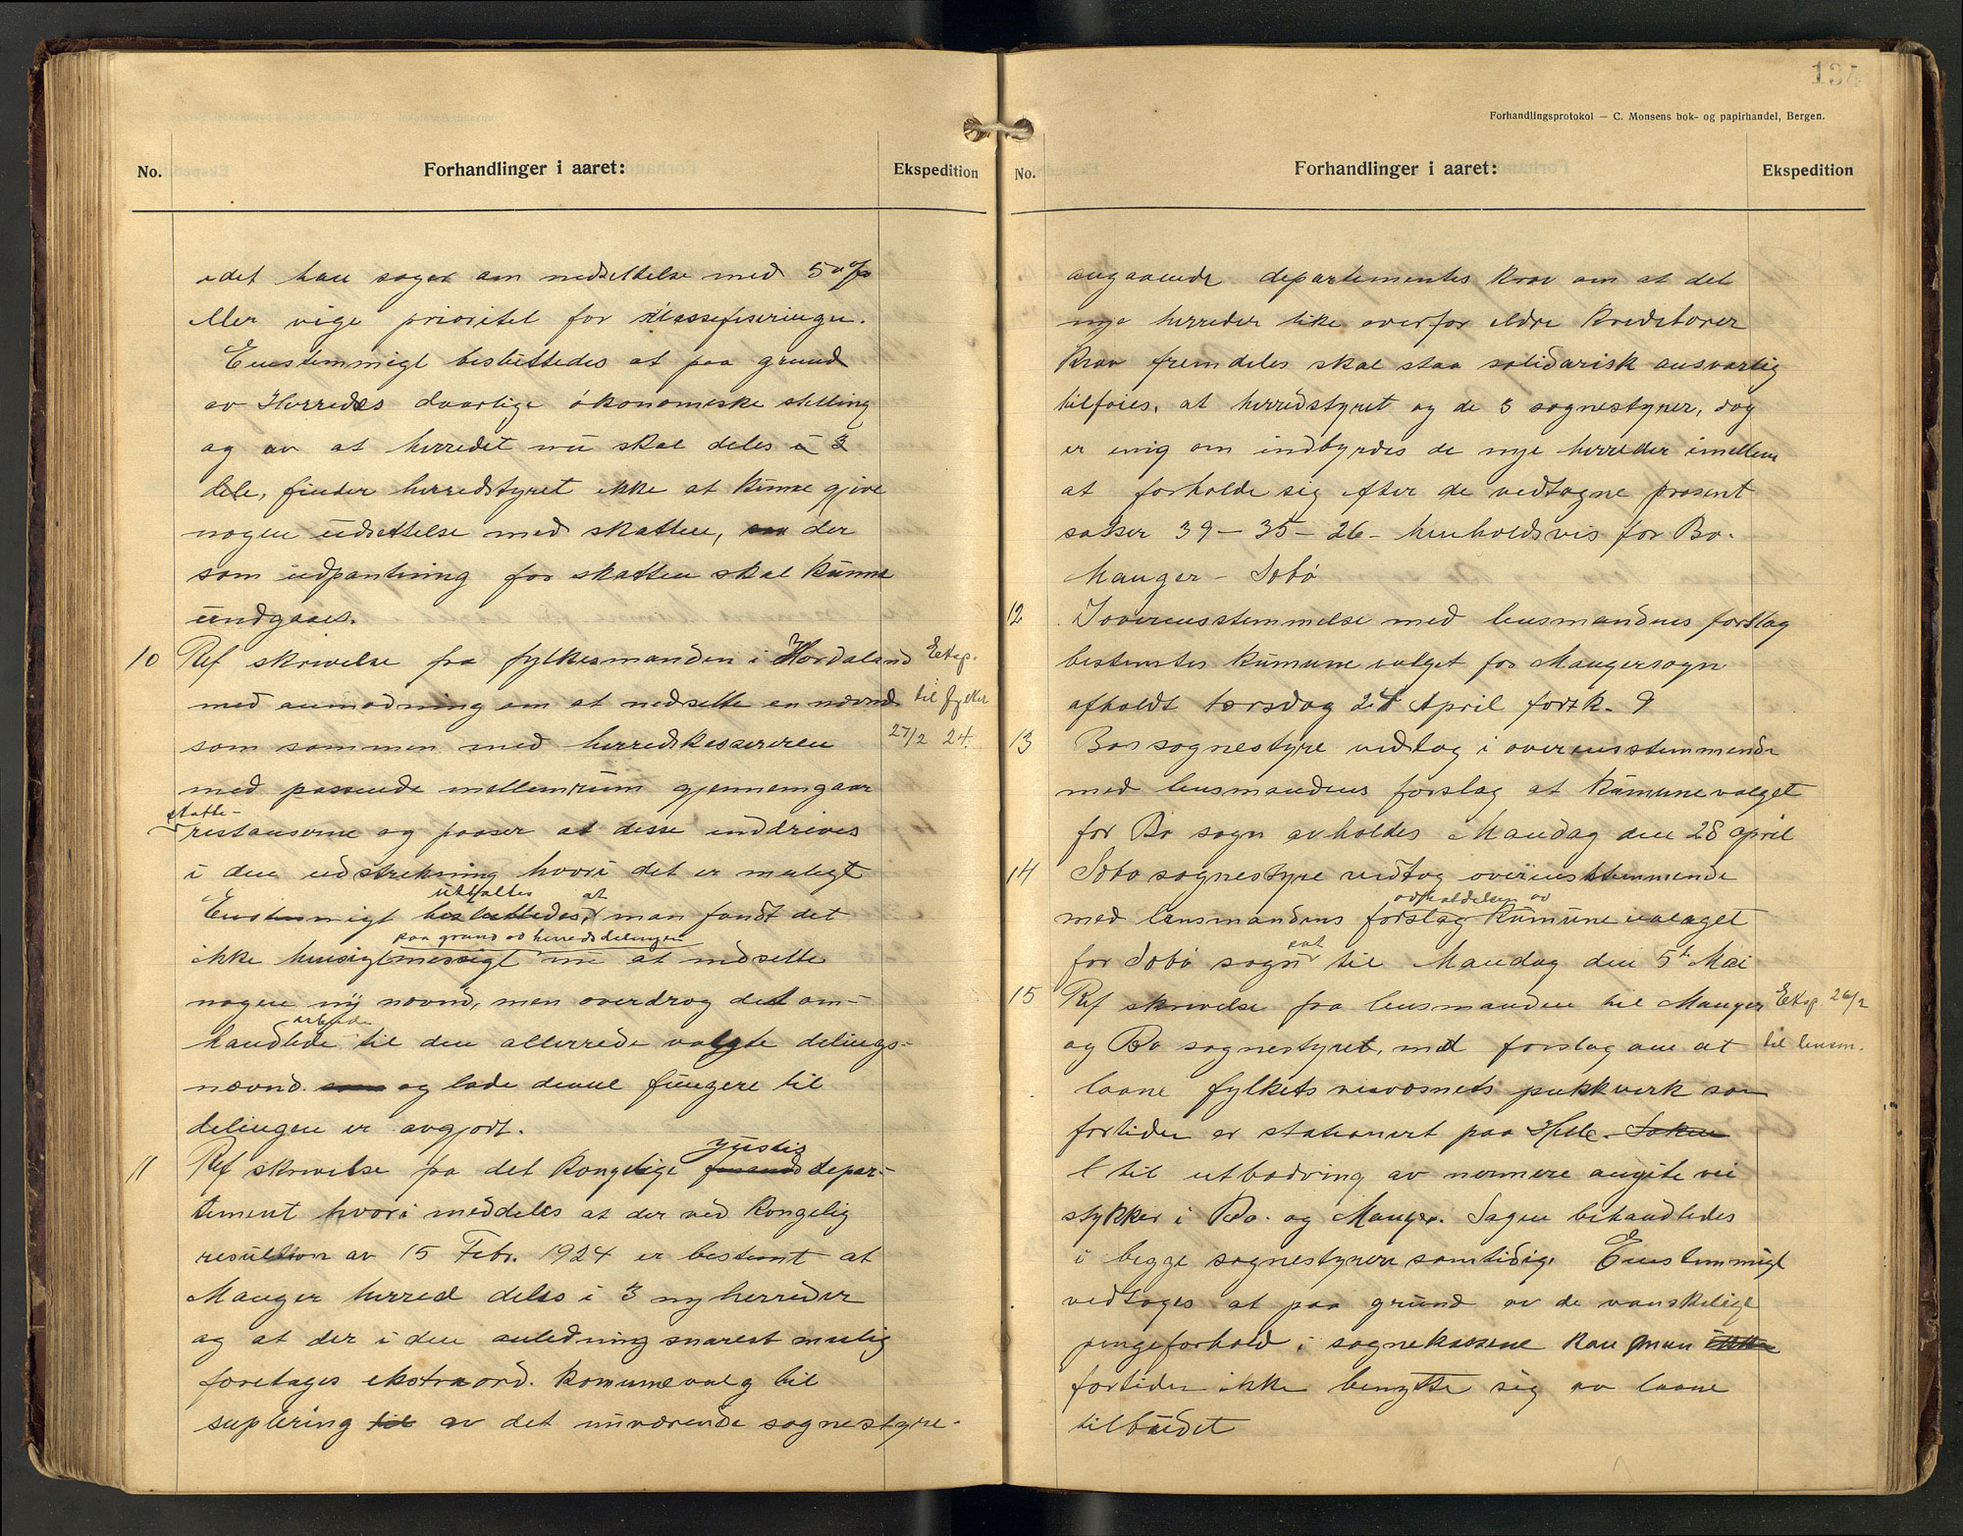 No.
Forhandlinger i aaret:
Ekspedition
idet han søger om nedsettelse med 50 %
eller vige prioritet for klassefiseringen.
Enstemmigt besluttedes at paa grund
av Herredets daarlige økonomiske stilling
og av at herredet nu skal deles i 3
dele, finder herredstyret ikke at kunne give
nogen udsettelse med skatten, saa der
som udpantning for skatten skal kunne
undgaaes.
10 Ref skrivelse fra fylkesmanden i Hordaland Eksp.
med anmodning om at nedsette en nævnd til fylker
som sammen med herredskassereren 27/2 24.
med passende mellemrum gjennemgaar
skatte-
restanserne og passer at disse inddrives
i den udstrekning hvori det er muligt
uttaltes at
Enstemmigt besluttedes, man fandt det
paa grund av herredsdelingen
ikke hensigtmessigt nu at nedsette
nogen ny nævnd, men overdrog det om-
arbeide
handlede til den allerrede valgte delings-
nævnd. som og lade denne fungere til
delingen er avgjort.
Justis
11 Ref skrivelse fra det kongelige depar-
tement hvori meddeles at der ved kongelig
resulution av 15 Febr. 1924 er bestemt at
Manger herred deles i 3 ny herreder
og at der i den anledning snarest mulig
foretages ekstraord. komunevalg til
suplering til av det nuværende sognestyre.
134
Forhandlingsprotokol — C. Monsens bok- og papirhandel, Bergen.
No.
Forhandlinger i aaret:
Ekspedition
angaaende departementes krav om at det
nye herreder like overfor eldre kreditorer
krav fremdeles skal staa solidarisk ansvarlig
tilføies, at herredstyret og de 3 sognestyrer, dog
er enig om indbyrdes de nye herreder imellem
at forholde sig efter de vedtagne prosent
satser 39 - 35 - 26 - henholdsvis for Bø.
Manger - Sæbø
12 I overensstemmelse med lensmandens forslag
bestemtes kumune valget for Mangersogn
afholdt torsdag 24 April førk. 9
13 Bøs sognestyre vedtog i overensstemmende
med lensmandens forslag at kumunevalget
for Bø sogn avholdes Mandag den 28 april
14 Sæbø sognestyre vedtog overensstemmende
avholdelsen av
med lensmandens forslag kumune valaget
sat
for Sæbø sogn til Mandag den 5t Mai
15 Ref skrivelse fra lensmanden til Manger Eksp 26/2
og Bø sognestyret, med forslag om at til lensm.
laane fylkets veivæsnets pukkverk som
fortiden er stationert paa Helle. Søkou
t til utbedring av nermere angite vei
stykker i Bø. og Manger. Sagen behandledes
i begge sognestyrer samtidig. Enstemmigt
vedtoges at paa grund av de vanskelige
pengeforhold i sognekassene kan man ikke
fortiden ikke benytte sig av laane
tilbudet